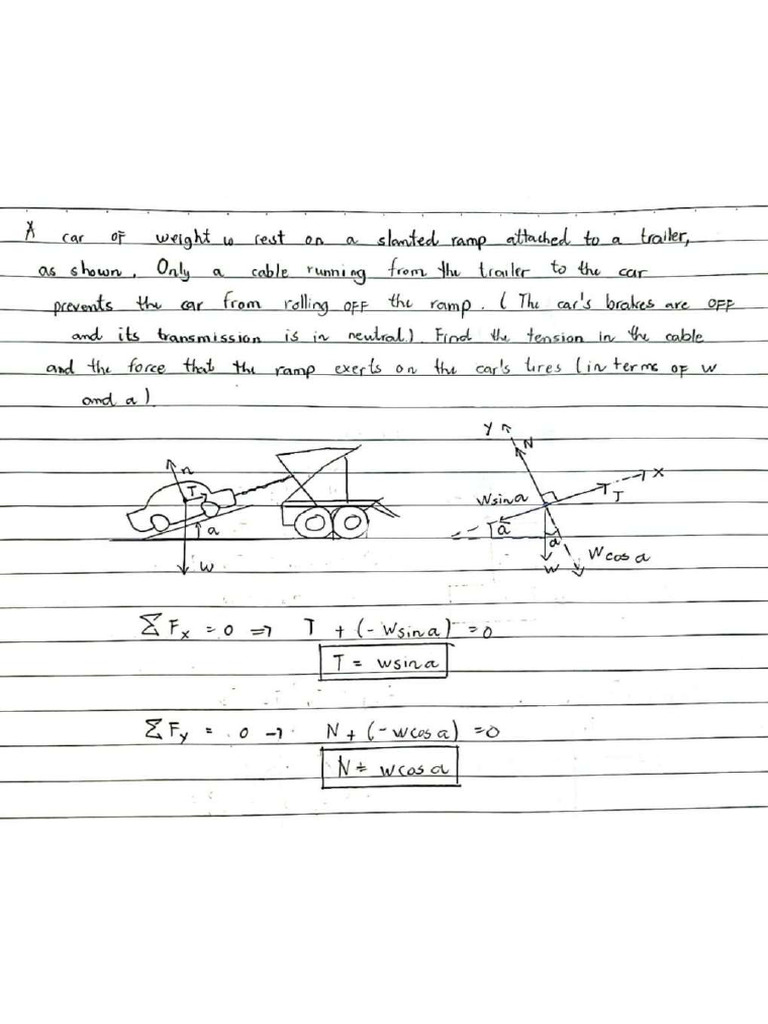 A car of weight w rest on a slanted ramp attached to a trailer,
as shown. Only a cable running from the trailer to the car
prevents the car from rolling off the ramp. (The car's brakes are off
and its transmission is in neutral.) Find the tension in the cable
and the force that the ramp exerts on the car's tires (in terms of w
and a)
n
T
a
w
y
N
x
T
Wsina
a
a
w
Wcosa
ΣFx = 0 => T + (-Wsina) = 0
T = wsina
ΣFy = 0 -> N + (-wcosa) = 0
N = wcosa